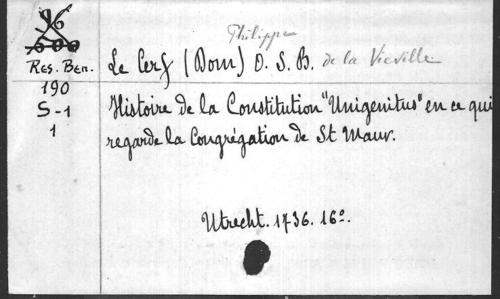 Philippe
Le Cerf (Dom) O. S. B. de la Vieville
Res. Ben.
190
S-1
1
Histoire de la Constitution "Unigenitus" en ce qui
regarde la Congrégation de St Maur.
Utrecht. 1736. 16º.